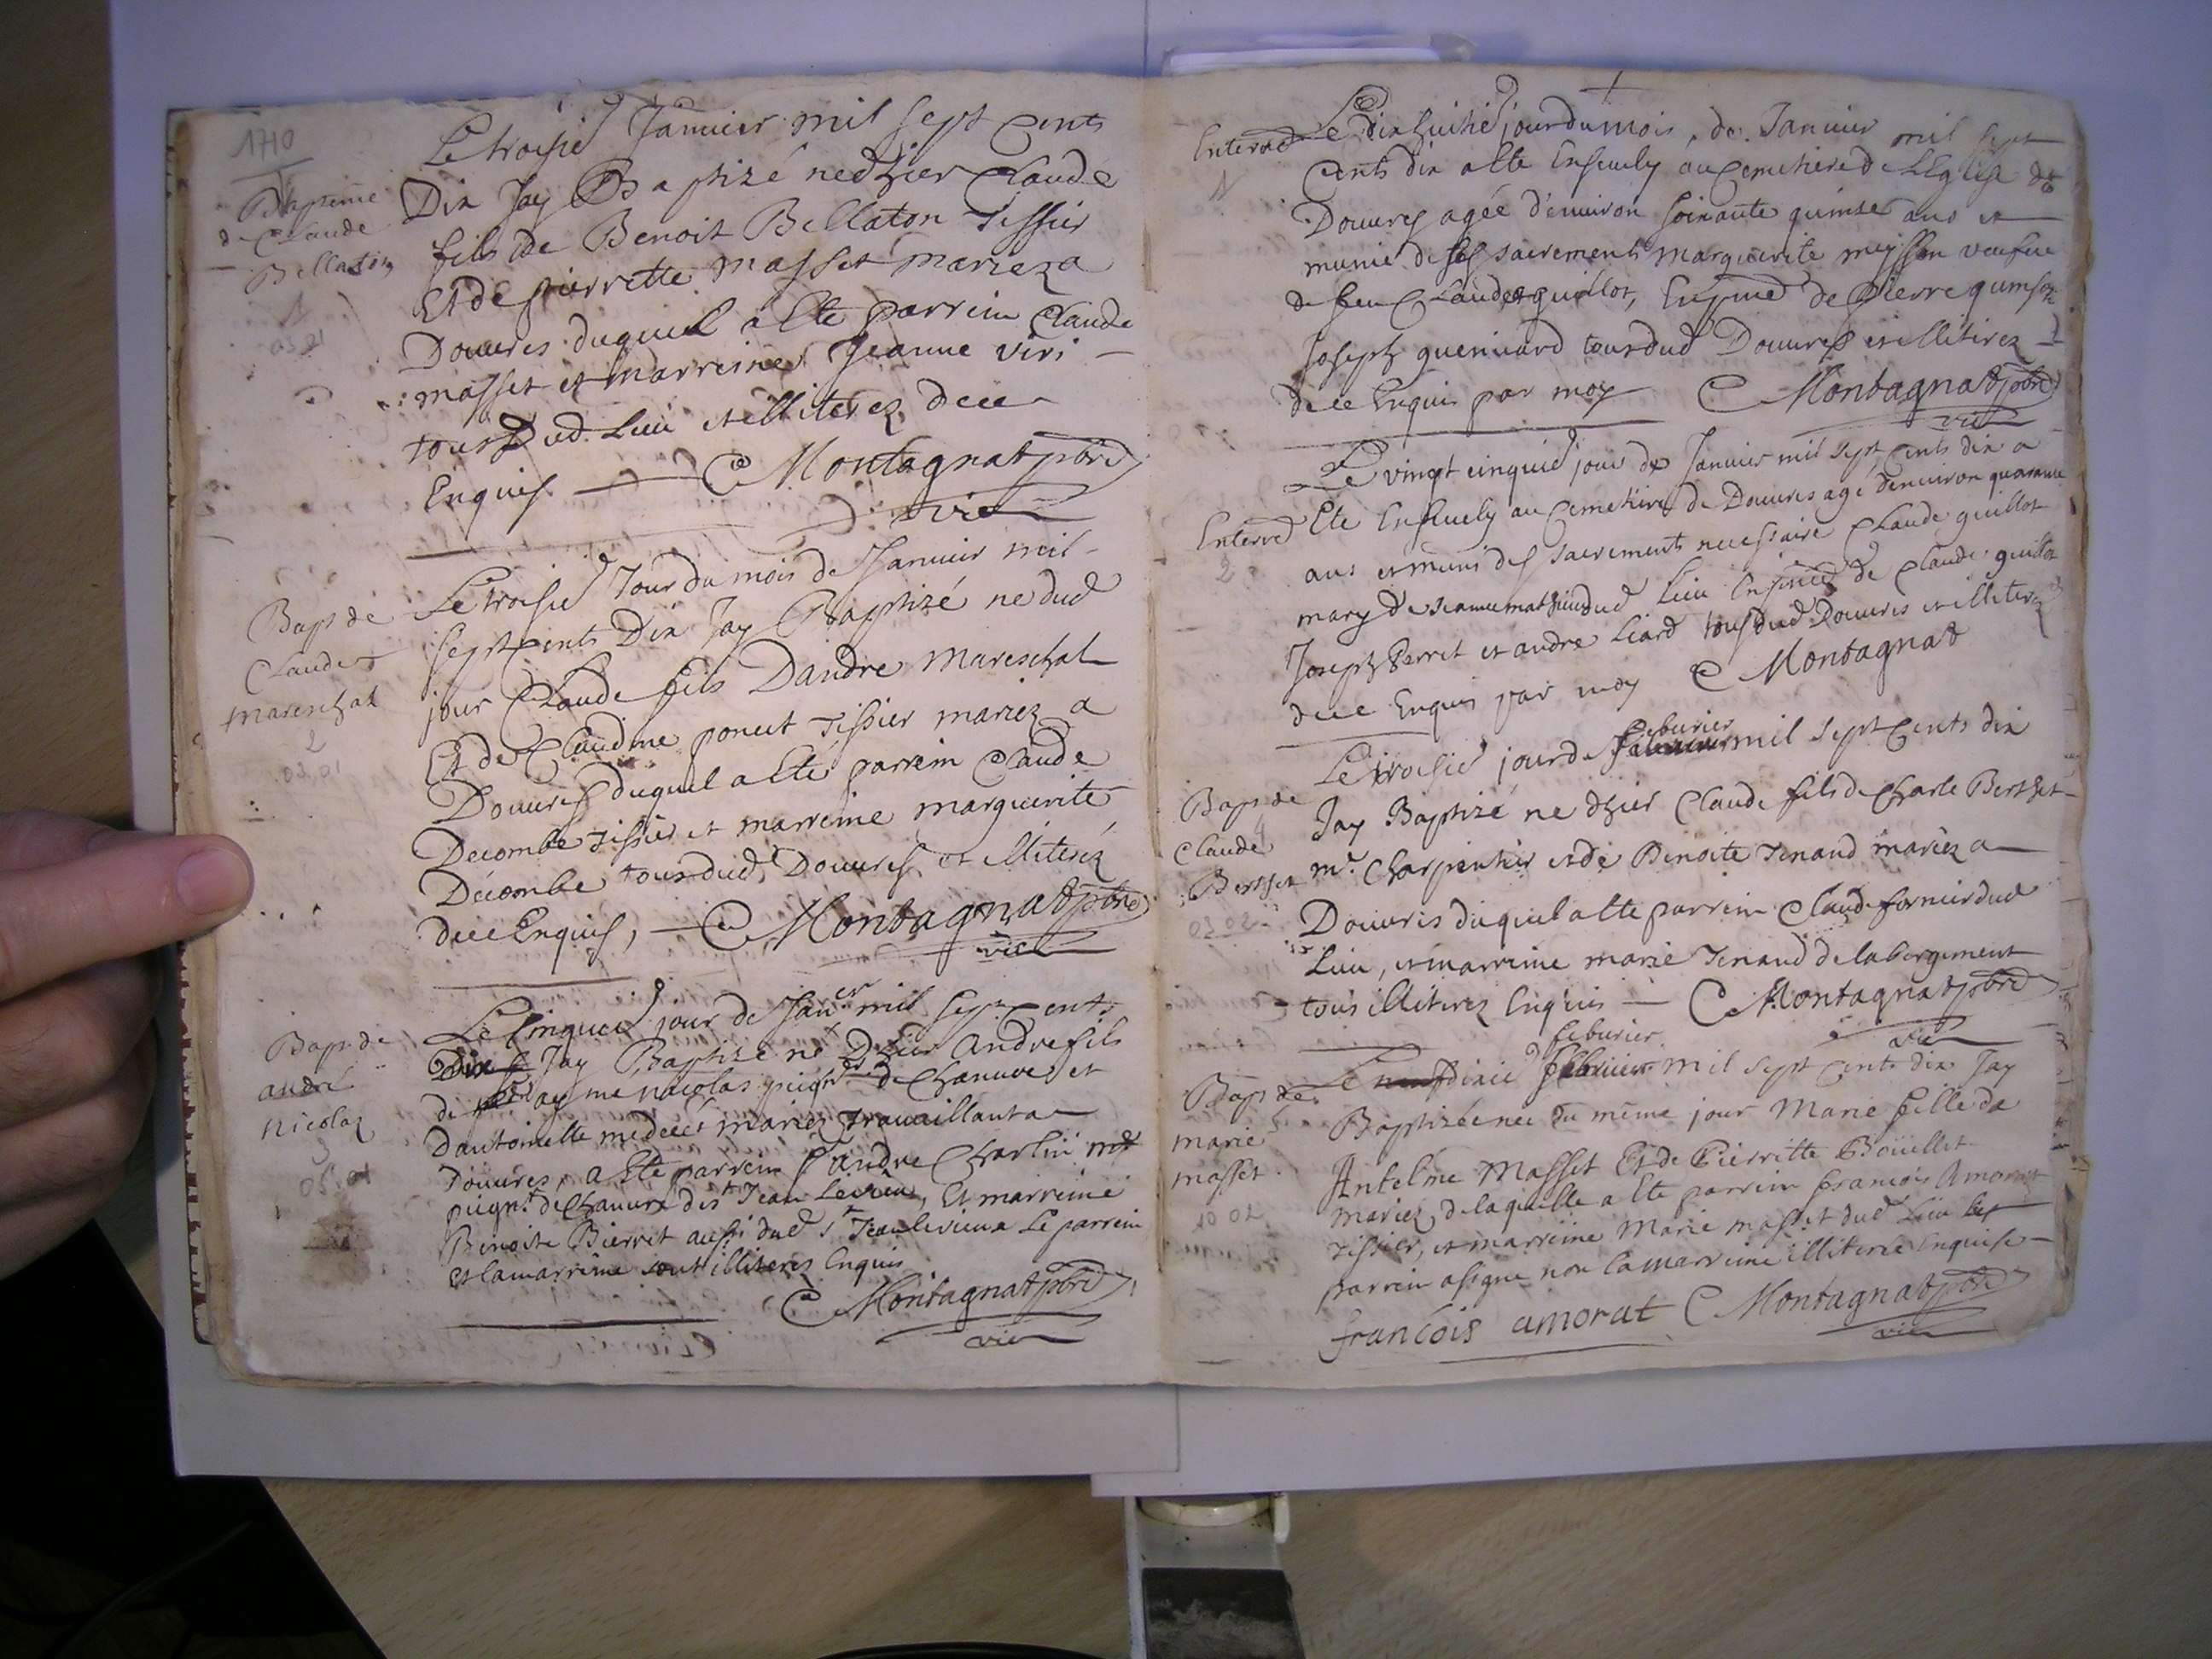 1710
Baptême
de Claude
Bellaton
1
03 01
Le troisie Januier mil sept Cents
Dix Jay Baptizé ne d'hier Claude
fils de Benoit Bellaton Tissier
Et de pierrette Masset mariez a
Douures duquel a Este parrein Claude
masset et marreine Jeanne viri
tous dud. Lieu et illiterez dece
Enquis C Montagnat pbre
vic
Bap. de
Claude
mareschal
2
03 01
Le troisie Jour du mois de Januier mil
sept cents Dix Jay Baptizé ne dud
jour Claude fils Dandre Mareschal
Et de Claudine poncet Tissier mariez a
Douures duquel a Esté parrein Claude
Decombe tissier et marreine marguerite
Decombe tous dud. Douures et illiterez
dece Enquis, C Montagnat pbre
vic
Bap. de
andré
nicolas
3
05 01
Le Cinquie jour de Jan.er mil sept cents
Dix Jay Baptizé né D'hier Andre fils
de Jayme nicolas peign.r de chanure et
Dantoinette mariez travaillant a
Douures, a Este parrein Andre Charlin m.e
peign.r de chanure de s.t Jean Levieu, Et marreine
Benoite Bierret aussi dud s.t Jean levieux Le parrein
Et la marreine sont illiterez Enquis
C Montagnat pbre
vic
Enterré
1
Le dix huitie jour du mois de Januier mil sept
Cents dix a Este Enseuely au Cemetiere de LEglise de
Douures agée d'enuiron soixante quinze ans et
munie de ses sacrements marguerite meysson veufue
de feu Claude guillot, En pnce de Pierre quinson
Joseph guennard tous dud Douures et illitirez
de ce Enquis par moy C Montagnat pbre
vic
Enterré
2
Le vingt cinquie jour de Januier mil sept Cents dix a
Este Enseuely au Cemetiere de Douures agé denuiron quarante
ans et muni des sacrements necessaire Claude guillot
mary de Jeanne mathieu dud Lieu En pnce de Claude guillot
Joseph Perret et andre Liard tous dud Douures et illiterez
dece Enquis par moy C Montagnat
Bap. de
Claude
Berthet
4
03 02
feburier
Le troisie jour de mil sept Cents dix
Jay Baptizé ne d'hier Claude fils de Charle Berthet
m.e Charpentier et de Benoite Tenand mariez a
Douures duquel a Este parrein Claude fornier dud
Lieu, et marreine marie Tenand de labergement
tous illiterez Enquis C Montagnat pbre
vic
Bap. de
marie
masset
5
10 02
feburier
Le dixie mil sept Cents dix Jay
Baptizée née du même jour Marie fille de
Antelme Masset Et de Pierrette Boüillet
mariez, de laquelle a Este parrein françois Amorat
tissier, et marreine Marie masset dud Lieu Les
parrein asigne non la marreine illiterée Enquise
francois amorat C Montagnat pbre
vic